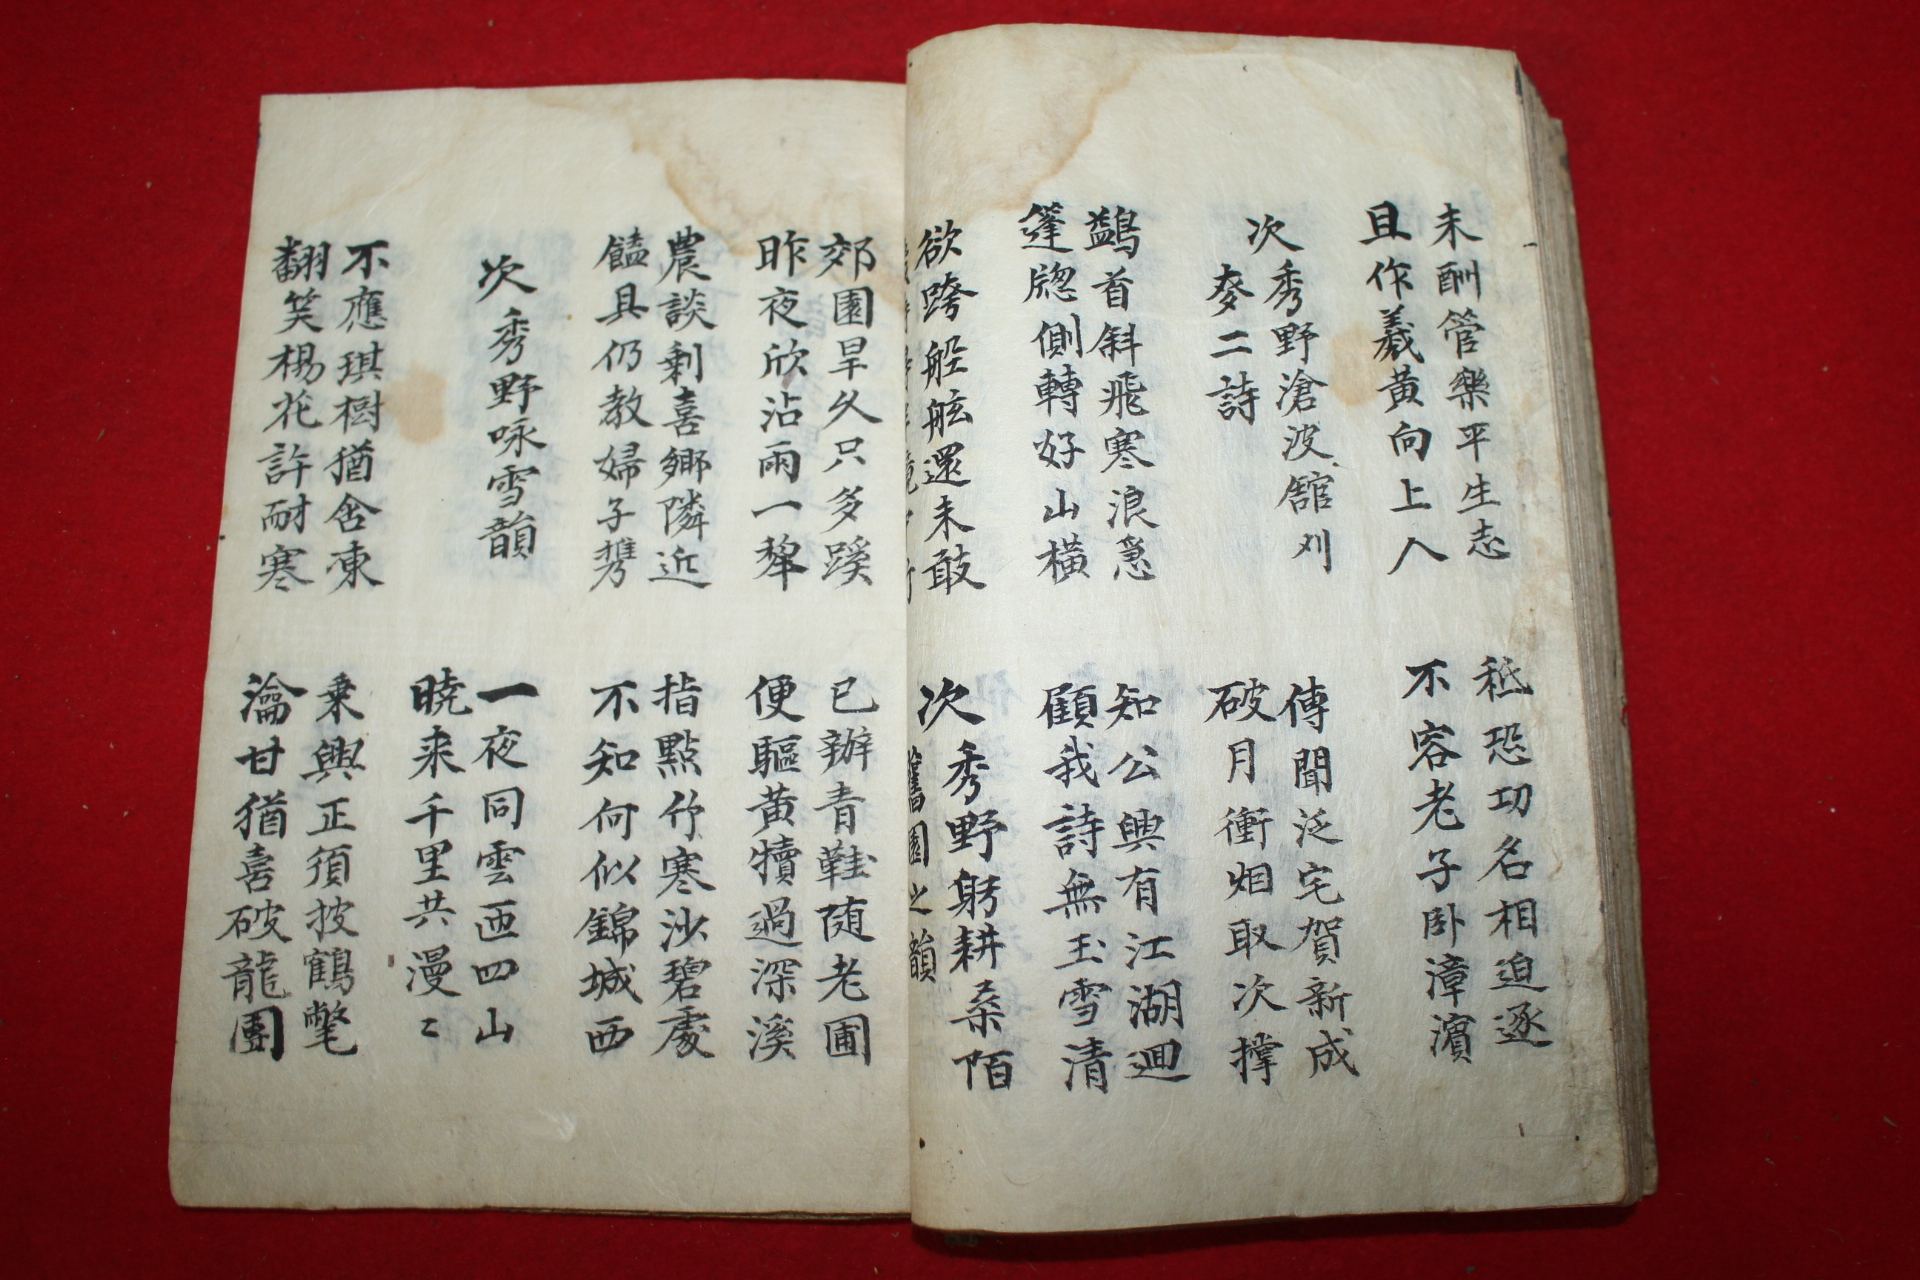 未酬管樂平生志
且作羲黃向上人
秪恐功名相迫逐
不容老子卧漳濱
次秀野滄波舘刈
麥二詩
傳聞泛宅賀新成
破月衝烟取次撑
鷁首斜飛寒浪急
篷牕側轉好山橫
知公興有江湖逥
顧我詩無玉雪清
欲跨船舷還未敢
次秀野躬耕桑陌
舊園之韻
郊園旱久只多蹊
昨夜欣沾雨一犂
已辦青鞋随老圃
便驅黃犢過深溪
農談剩喜鄉隣近
饁具仍教婦子携
指點竹寒沙碧處
不知何似錦城西
次秀野咏雪韻
一夜同雲匝四山
曉来千里共漫〻
不應琪樹猶含凍
翻笑楊花許耐寒
乗興正須披鶴氅
瀹甘猶喜破龍團